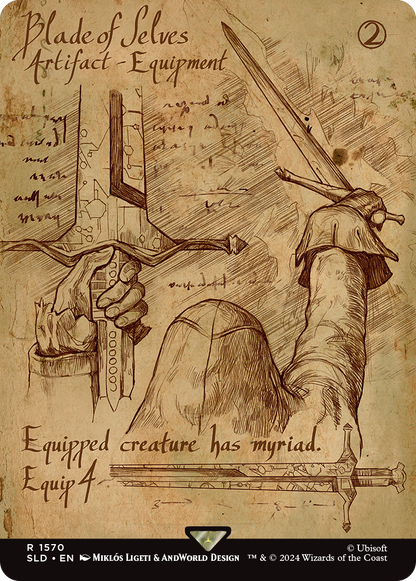 Blade of Selves
2
Artifact - Equipment
Equipped creature has myriad.
Equip 4
R 1570
© Ubisoft
SLD • EN Miklós Ligeti & AndWorld Design
™ & © 2024 Wizards of the Coast